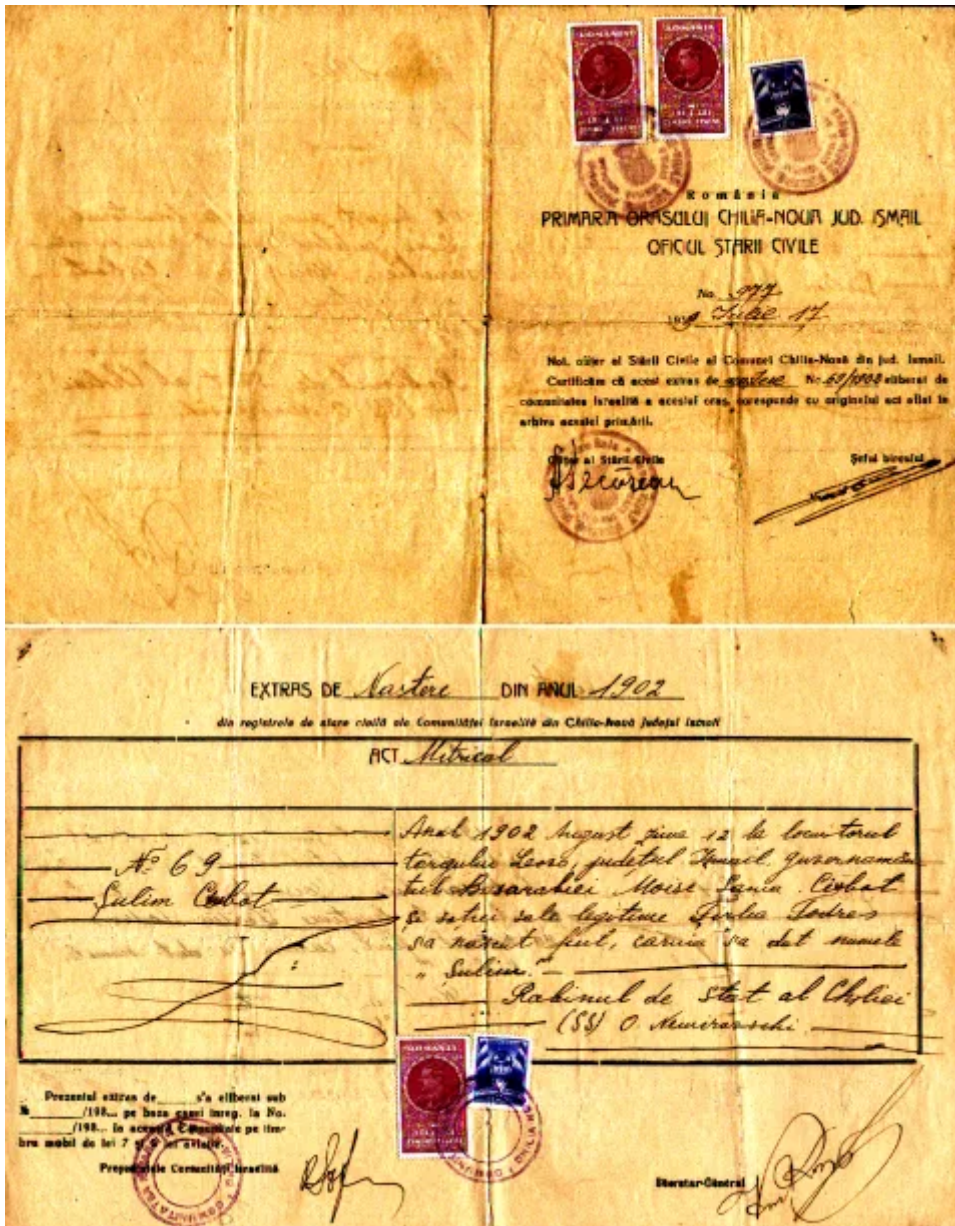 România
PRIMARIA ORASULUI CHILIA-NOUA JUD. ISMAIL
OFICIUL STARII CIVILE
No. 977
1939 Iulie 17
Noi. ofițer al Stării Civile al Comunei Chilia-Nouă din jud. Ismail.
Certificăm că acest extras de nastere No. 69/1902 eliberat de
comunitatea israelită a acestui oraș, corespunde cu originalul aci aflat în
arhiva acestei primării.
Ofițer al Stării Civile
Șeful biroului
EXTRAS DE Nastere DIN ANUL 1902
din registrele de stare civilă ale Comunităței Israelite din Chilia-Nouă județul Ismail
ACT Mitrical
No 69
Șulim Cubot
Anul 1902 August ziua 12 la locuitorul
târgului județul Ismail, guvernamân
tul Basarabiei Moise
și soției sale legitime Todres
sa născut fiul, caruia sa dat numele
" Șulim."
Rabinul de Stat al Chiliei
(SS) O.
Prezentul extras de s'a eliberat sub
№ /193... pe baza cererei înreg. la No.
/193... la această Comunitate pe tim-
bru mobil de lei 7 și lei aviație.
Președintele Comunităței Israelită
Secretar-General